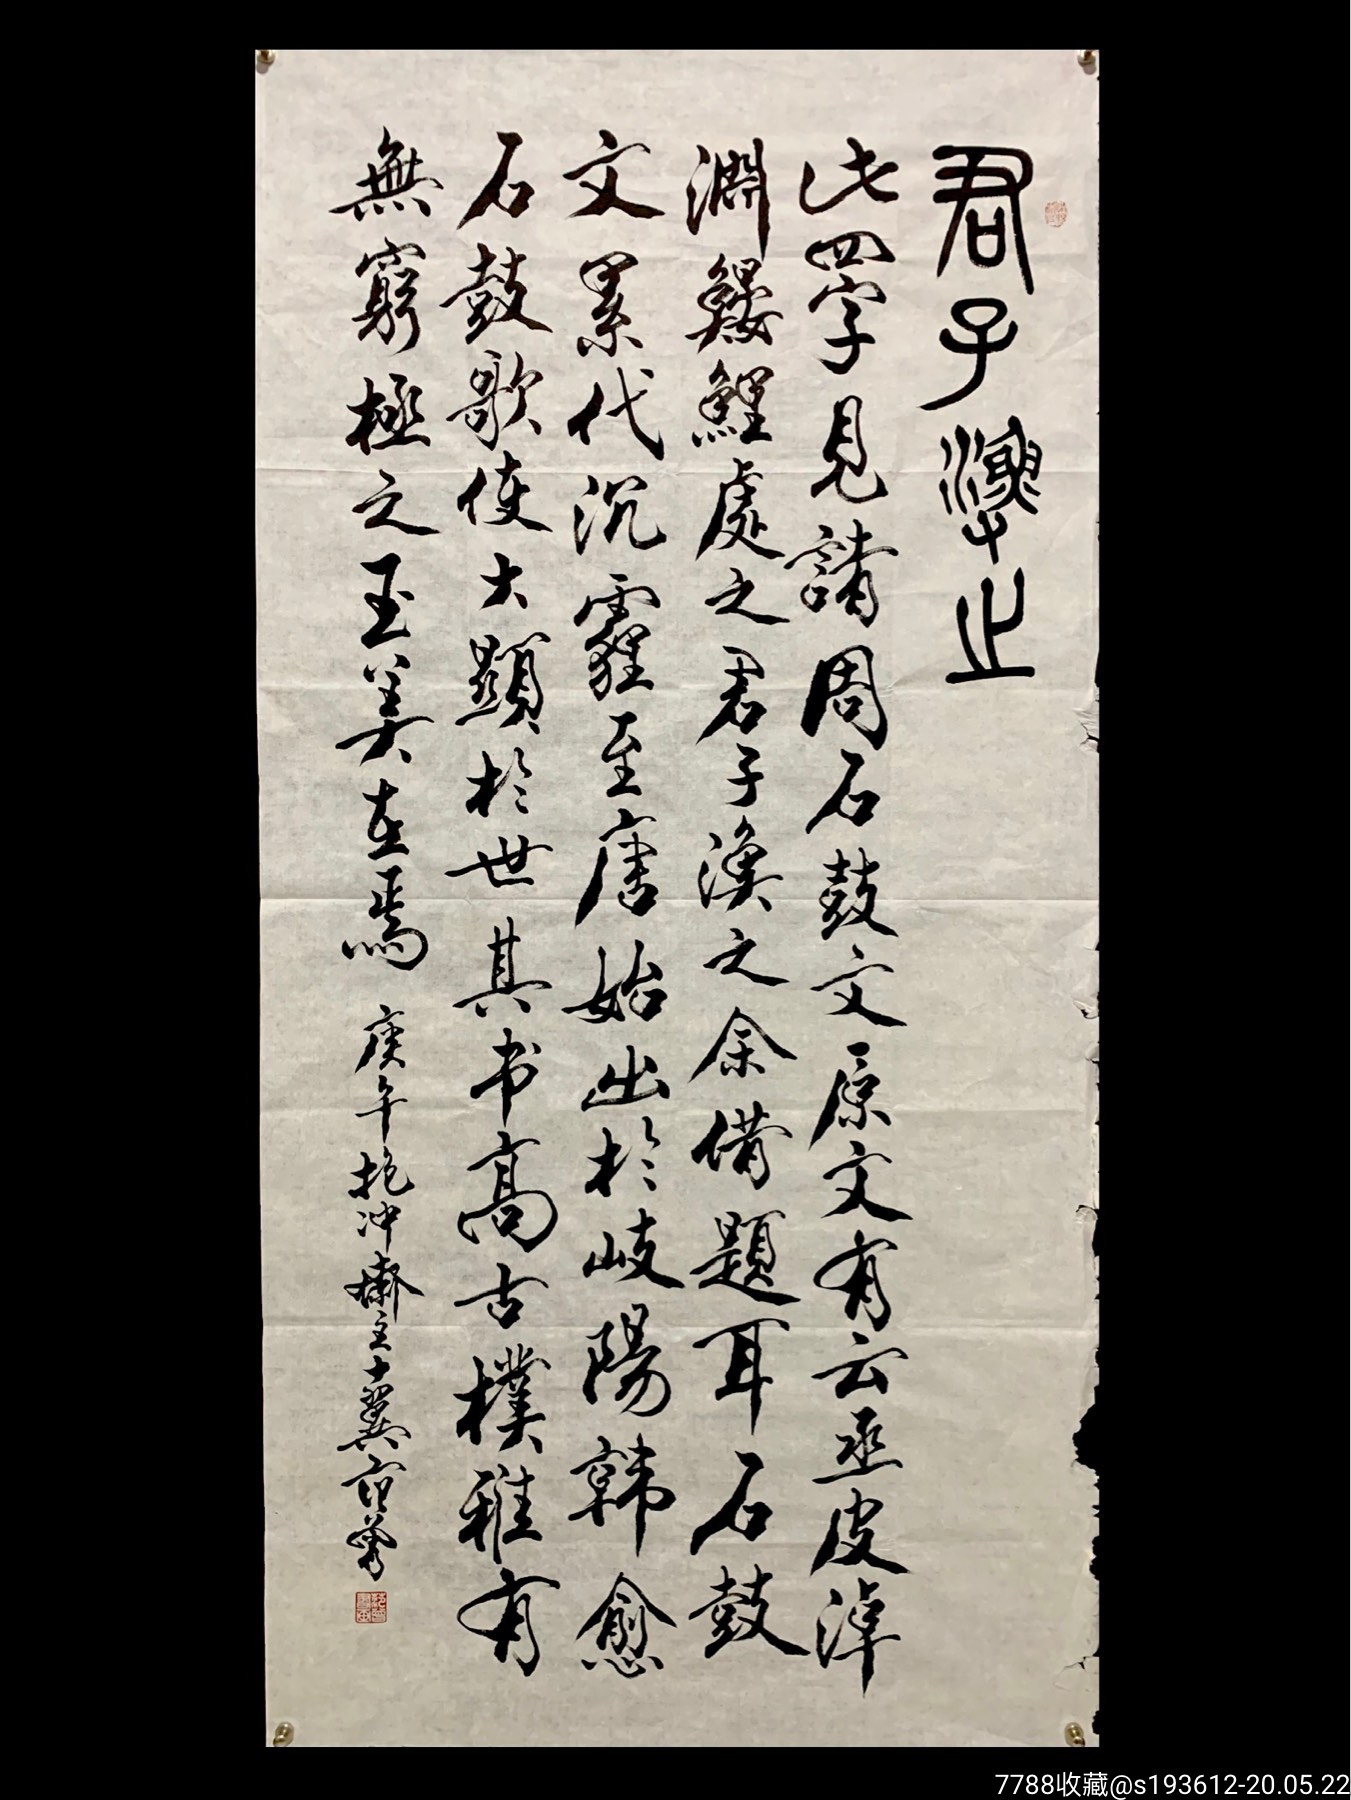 君子漁之
此四字見諸周石鼓文原文有云丞皮淖
淵鰋鯉處之君子漁之余備題耳石鼓
文累代沉霾至唐始出於岐陽韓愈
石鼓歌使大顯於世其书高古樸雅有
無窮極之至美在焉 庚午抱冲齋主十翼范曾
7788收藏@s193612-20.05.22